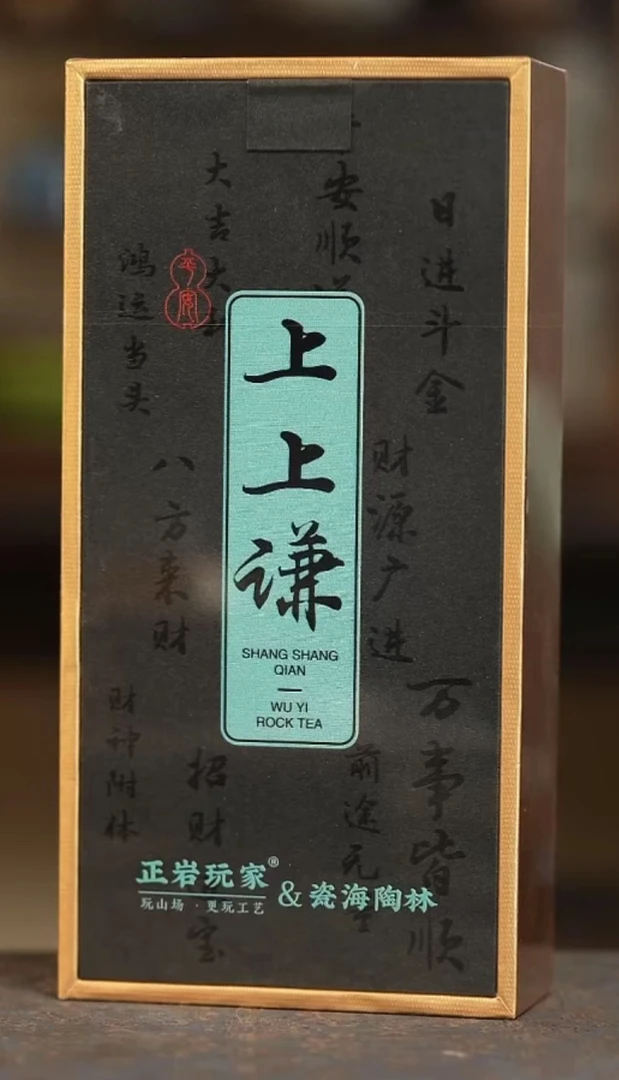 上上谦
SHANG SHANG
QIAN
WU YI
ROCK TEA
平安
日进斗金
安顺
大吉大
鸿运当头
财源广进
八方来财
万事皆顺
前途无
招财
宝
财神附体
正岩玩家®
玩山场·更玩工艺
&瓷海陶林